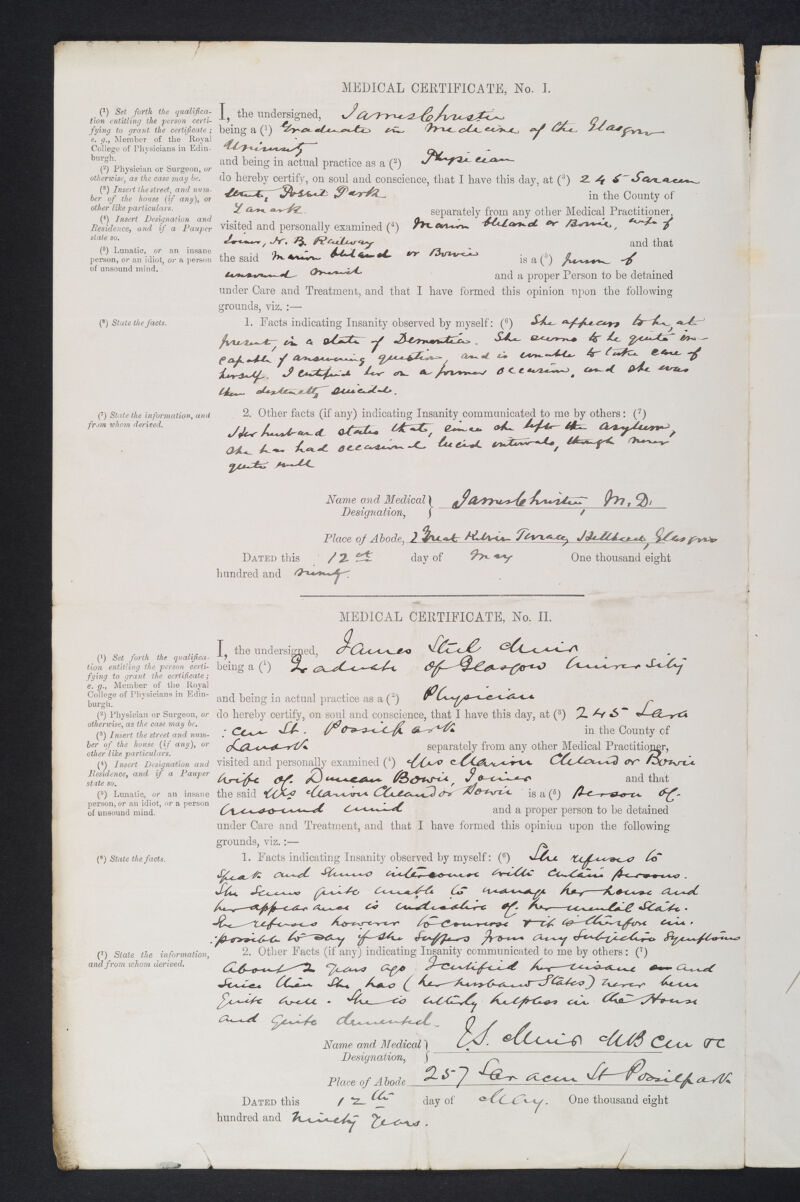 MEDICAL CERTIFICATE, No. I.
(¹) Set forth the qualifica-
tion entitling the person certi-
fying to grant the certificate;
e. g., Member of the Royal
College of Physicians in Edin-
burgh.
(²) Physician or Surgeon, or
otherwise, as the case may be.
(³) Insert the street, and num-
ber of the house (if any), or
other like particulars.
(⁴) Insert Designation and
Residence, and if a Pauper
state so.
(⁵) Lunatic, or an insane
person, or an idiot, or a person
of unsound mind.
I, the undersigned, James Christie
being a (¹) Graduate in medicine of the Glasgow
University
and being in actual practice as a (²) Physician
do hereby certify, on soul and conscience, that I have this day, at (³) 245 Saracen
Street, Possil Park in the County of
Lanark separately from any other Medical Practitioner,
visited and personally examined (⁴) Marion Cleland or Bowie, wife of
Joiner, N. B. Railway and that
the said Marion Cleland or Bowie is a (⁵) person of
unsound mind and a proper Person to be detained
under Care and Treatment, and that I have formed this opinion upon the following
grounds, viz. :—
(⁶) State the facts.
1. Facts indicating Insanity observed by myself: (⁶) She appears to be, at
present, in a state of Dementia. She seems to be quite in-
capable of answering question, and is unable to take care of
herself. I certified her on a former occasion, and she was
then distinctly suicidal.
(⁷) State the information, and
from whom derived.
2. Other facts (if any) indicating Insanity communicated to me by others: (⁷)
Her husband states that, since she left the asylum,
she has had occasional lucid intervals, though never
quite well
Name and Medical Designation, James Christie, M.D.
Place of Abode, 2 Great Kelvin Terrace, Hillhead, Glasgow
DATED this 12th day of May One thousand eight
hundred and ninety.
MEDICAL CERTIFICATE, No. II.
(¹) Set forth the qualifica-
tion entitling the person certi-
fying to grant the certificate;
e. g., Member of the Royal
College of Physicians in Edin-
burgh.
(²) Physician or Surgeon, or
otherwise, as the case may be.
(³) Insert the street and num-
ber of the house (if any), or
other like particulars.
(⁴) Insert Designation and
Residence, and if a Pauper
state so.
(⁵) Lunatic, or an insane
person, or an idiot, or a person
of unsound mind.
I, the undersigned, James Steel Muir
being a (¹) Graduate of Glasgow University
and being in actual practice as a (²) Physician
do hereby certify, on soul and conscience, that I have this day, at (³) 245 Sara
:cen St. Possilpark in the County of
Lanark separately from any other Medical Practitioner,
visited and personally examined (⁴) Mrs Marion Cleland or Bowie
wife of Duncan Bowie, Joiner and that
the said Mrs Marion Cleland or Bowie is a (⁵) Person of
unsound mind and a proper Person to be detained
under Care and Treatment, and that I have formed this opinion upon the following
grounds, viz. :—
(⁶) State the facts.
1. Facts indicating Insanity observed by myself: (⁶) She refuses to
speak and shuns intercourse with certain persons.
She seems quite unable to manage her house and
her appearance is indicative of her mental state.
She refuses however to converse & it is therefore im-
:possible to say if she suffers from any subjective symptoms
(⁷) State the information,
and from whom derived.
2. Other Facts (if any) indicating Insanity communicated to me by others: (⁷)
About 2 years ago I certified her insane and
since then she has (her husband states) never been
quite well. She is utterly helpless in the House
and quite demented.
Name and Medical Designation, J.S. Muir MB CM &c
Place of Abode 257 Saracen St Possilpark
DATED this 12th day of May. One thousand eight
hundred and ninety years.